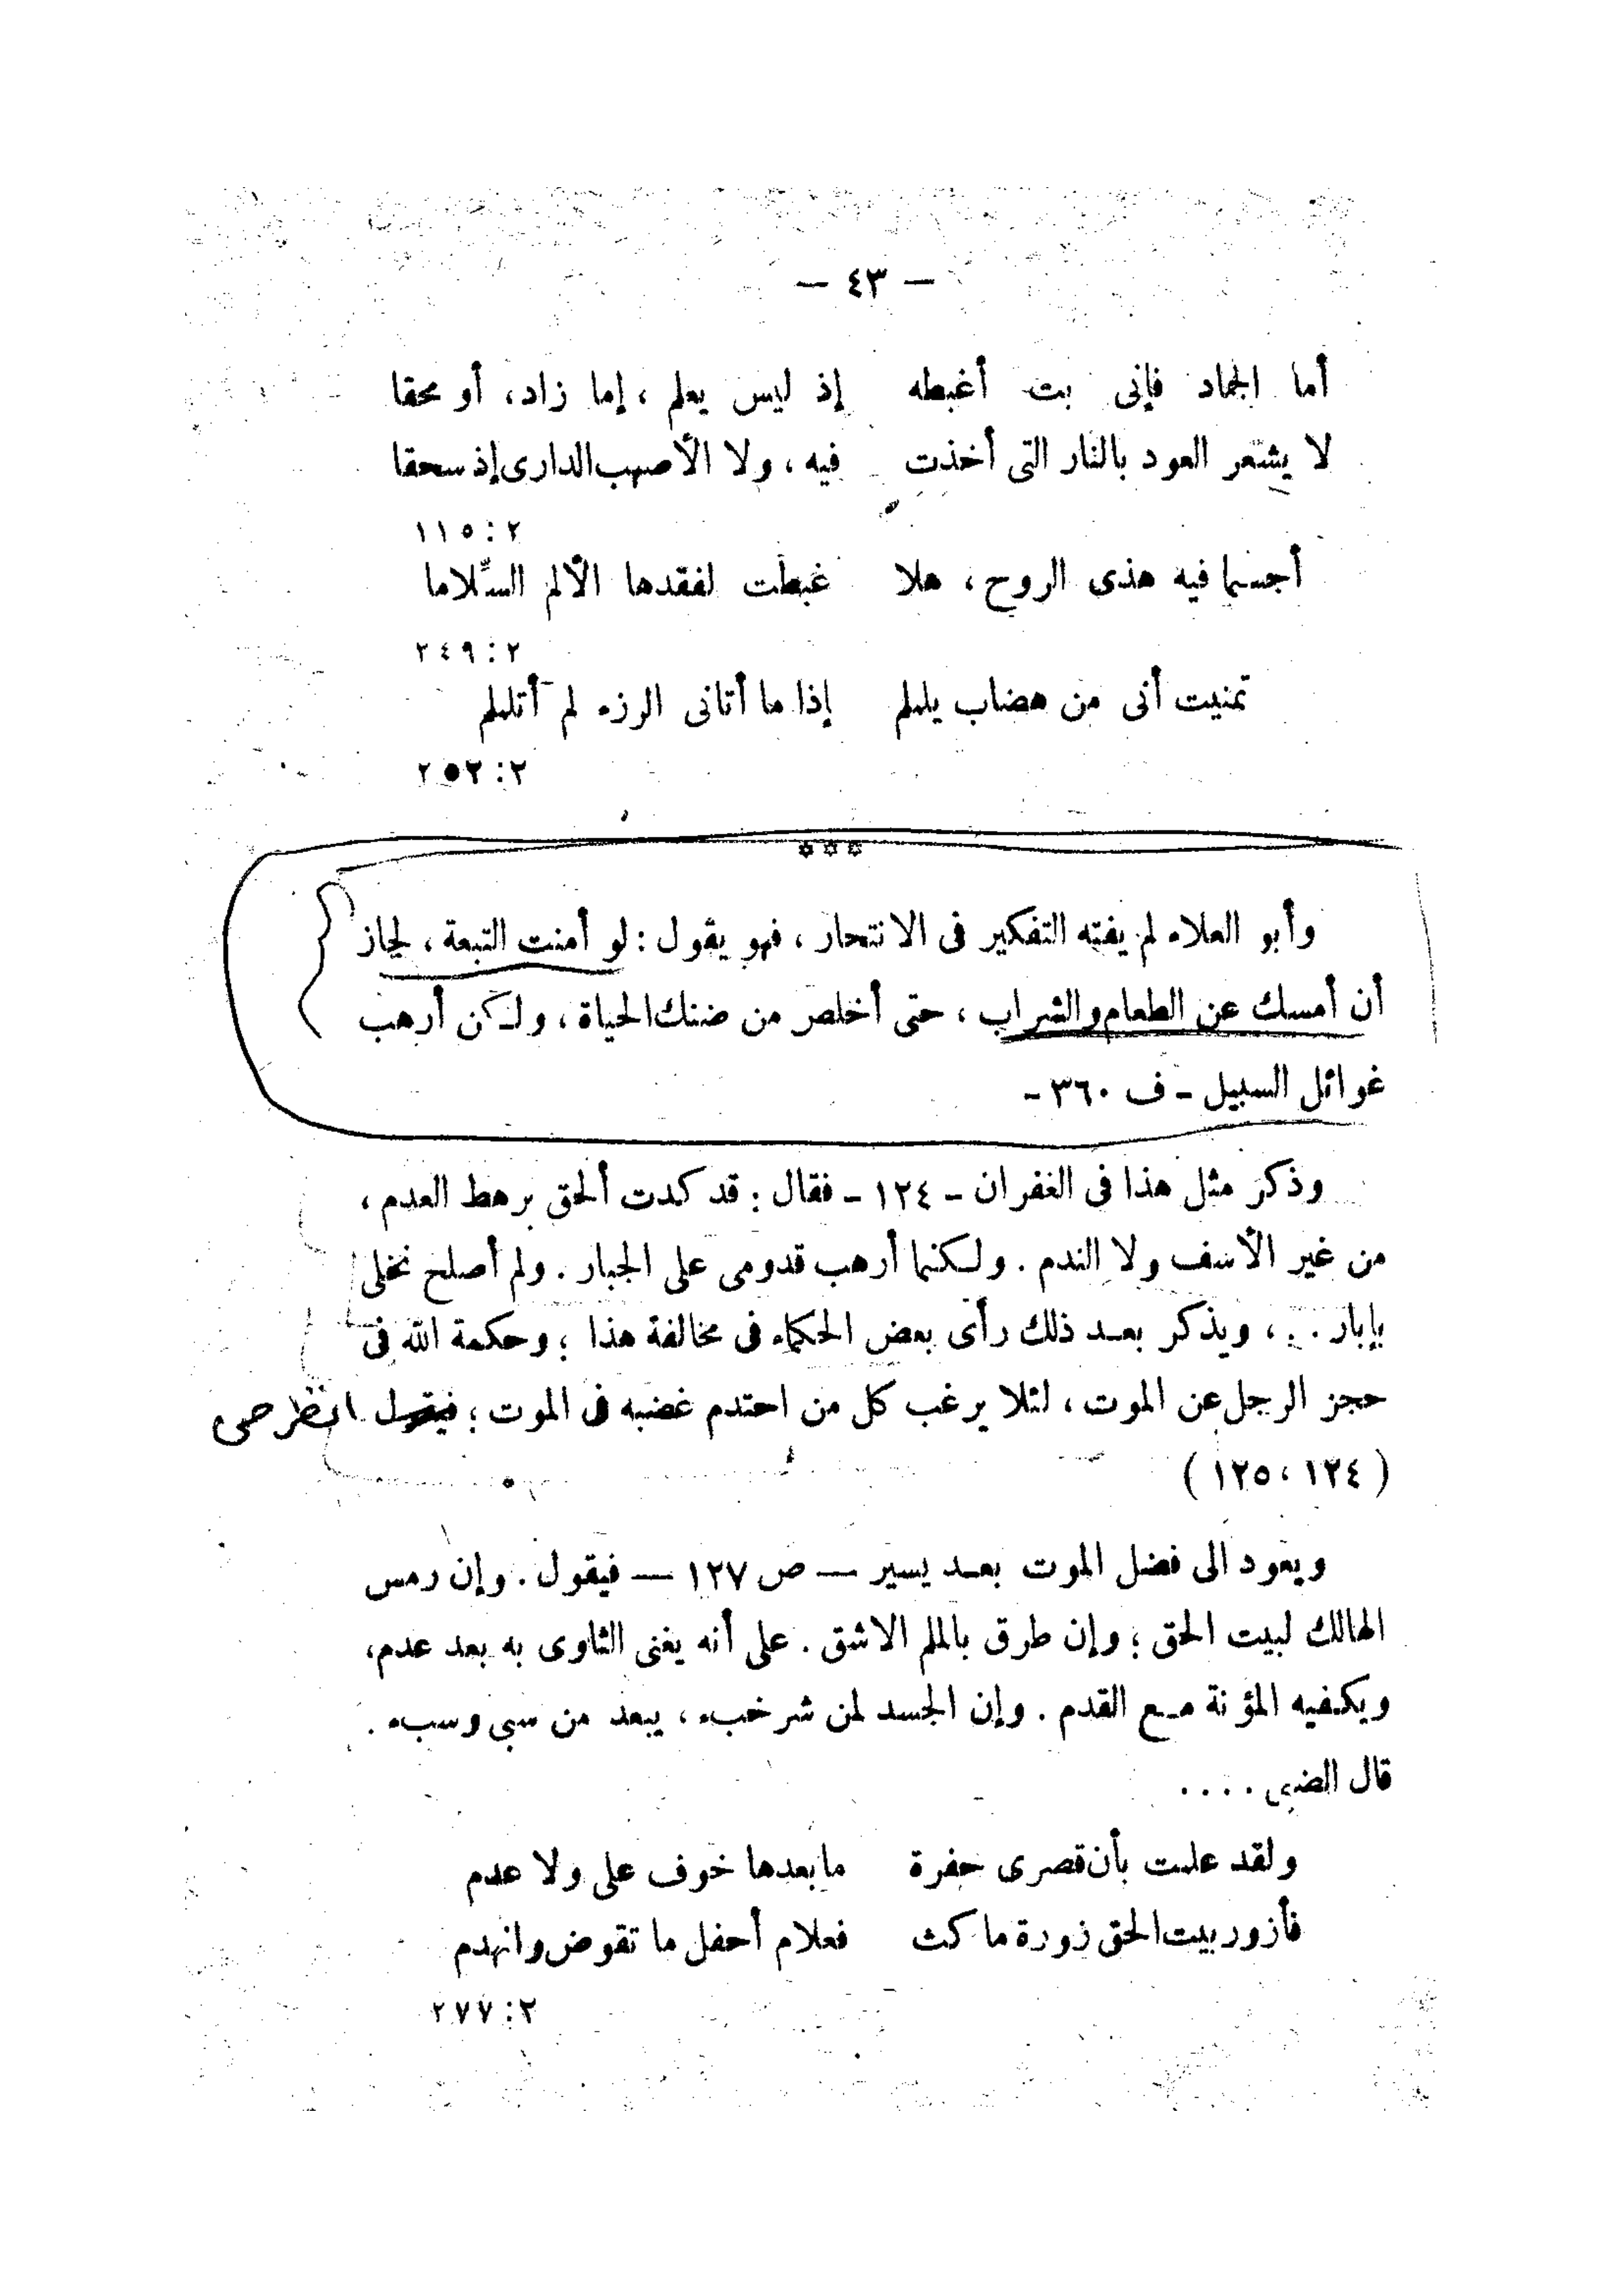 — ٤٣ —
أما الجماد فإنى بت أغبطه إذ ليس يعلم ، إما زاد، أو محقا
لا يشعر العود بالنار التى أخذت فيه ، ولا الأصهب الدارى إذ سحقا
٢ : ١١٥
أجسما فيه هذى الروح ، هلا غبطت لفقدها الألم السِّلاما
٢ : ٢٤٩
تمنيت أنى من هضاب يلملم إذا ما أتانى الرزء لم أتلملم
٢ : ٢٥٢
***
وأبو العلاء لم يفته التفكير فى الانتحار ، فهو يقول : لو أمنت التبعة ، لجاز
أن أمسك عن الطعام والشراب ، حتى أخلص من ضنك الحياة ، ولكن أرهب
غوائل السبيل ـ ف ٣٦٠ ـ
وذكر مثل هذا فى الغفران ـ ١٢٤ ـ فقال : قد كدت ألحق برهط العدم ،
من غير الأسف ولا الندم . ولكنما أرهب قدومى على الجبار . ولم أصلح نخلى
بإبار . . ، ويذكر بعد ذلك رأى بعض الحكماء فى مخالفة هذا ؛ وحكمة الله فى
حجز الرجل عن الموت ، لئلا يرغب كل من احتدم غضبه فى الموت ؛ فيقول انظر
( ١٢٤ ، ١٢٥ )
ويعود الى فضل الموت بعد يسير — ص ١٢٧ — فيقول . وإن رمس
الهالك لبيت الحق ؛ وإن طرق بالملم الاشق . على أنه يغنى الثاوى به بعد عدم،
ويكفيه المؤنة مع القدم . وإن الجسد لمن شر خبء ، يبعد من سبى وسبء .
قال الضبى . . . .
ولقد علمت بأن قصرى حفرة ما بعدها خوف على ولا عدم
فأزور بيت الحق زورة ماكث فعلام أحفل ما تقوض وانهدم
٢ : ٢٧٧